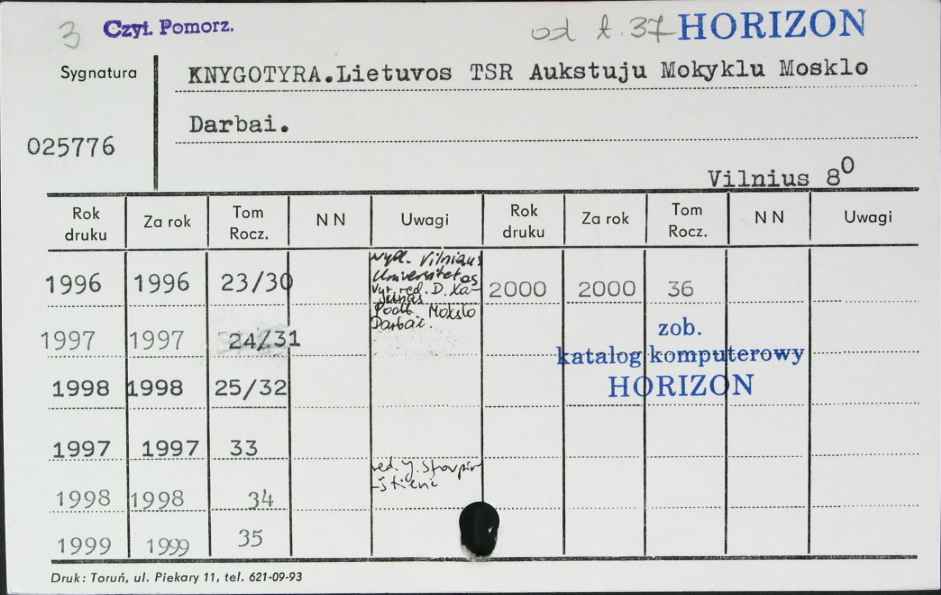 3 Czyt. Pomorz. od t. 37 HORIZON
Sygnatura KNYGOTYRA.Lietuvos TSR Aukstuju Mokyklu Mosklo
Darbai.
025776
Vilnius 8⁰
Rok druku Za rok Tom Rocz. N N Uwagi Rok druku Za rok Tom Rocz. N N Uwagi
1996 1996 23/30 2000 2000 36
wyd. Vilniaus
Universitetos
Vyr. red. D. Ka-
Podt. Mokslo
Darbai.
1997 1997 24/31
zob.
katalog komputerowy
HORIZON
1998 1998 25/32
1997 1997 33
red.
1998 1998 34
1999 1999 35
Druk: Toruń, ul. Piekary 11, tel. 621-09-93